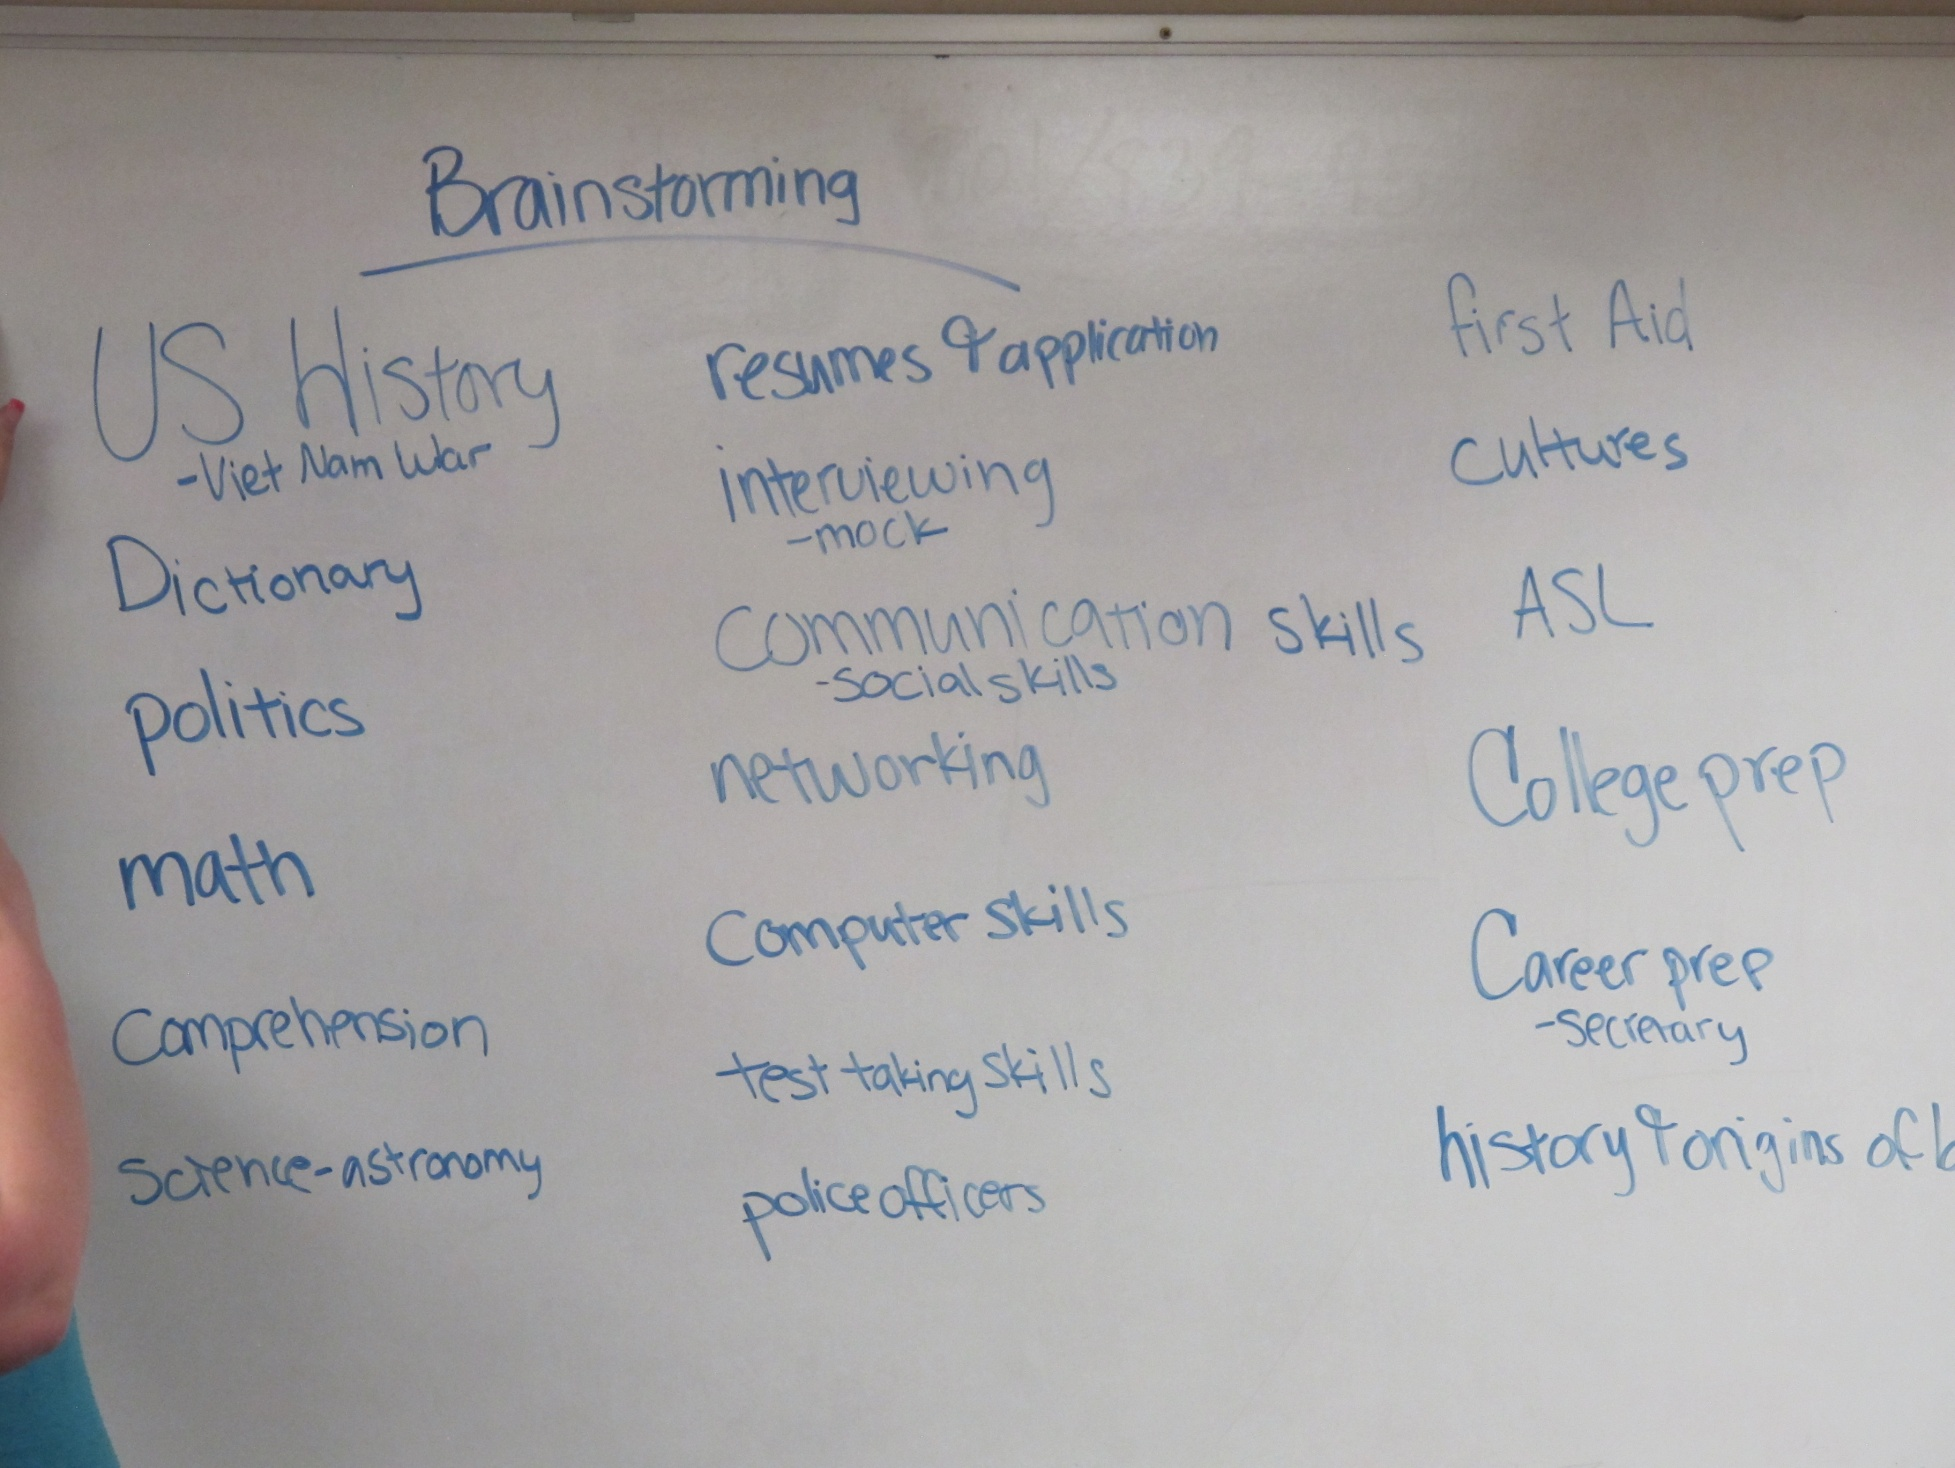 Brainstorming
US History
-Viet Nam War
Dictionary
politics
math
Comprehension
Science-astronomy
resumes & application
interviewing
-mock
Communication skills
-social skills
networking
Computer skills
test taking skills
police officers
first Aid
cultures
ASL
College prep
Career prep
-secretary
history & origins of